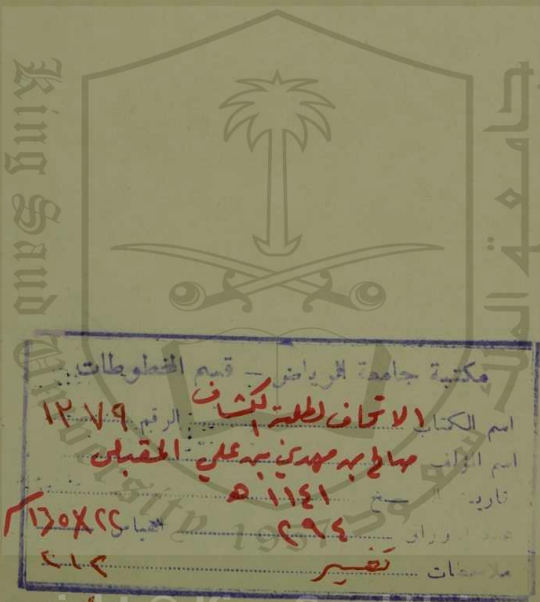 King Saud University
1957
مكتبة جامعة الرياض – قسم المخطوطات
اسم الكتاب الاتحاف لطلبة الكشاف الرقم ١٣٧٩
اسم المؤلف صالح بن مهدي بن علي المقبلي
تاريخ النسخ ١١٤١ ه
عدد الاوراق ٢٩٤ القياس ٢٢×١٦٫٥
ملاحظات تفسير ٢١٢